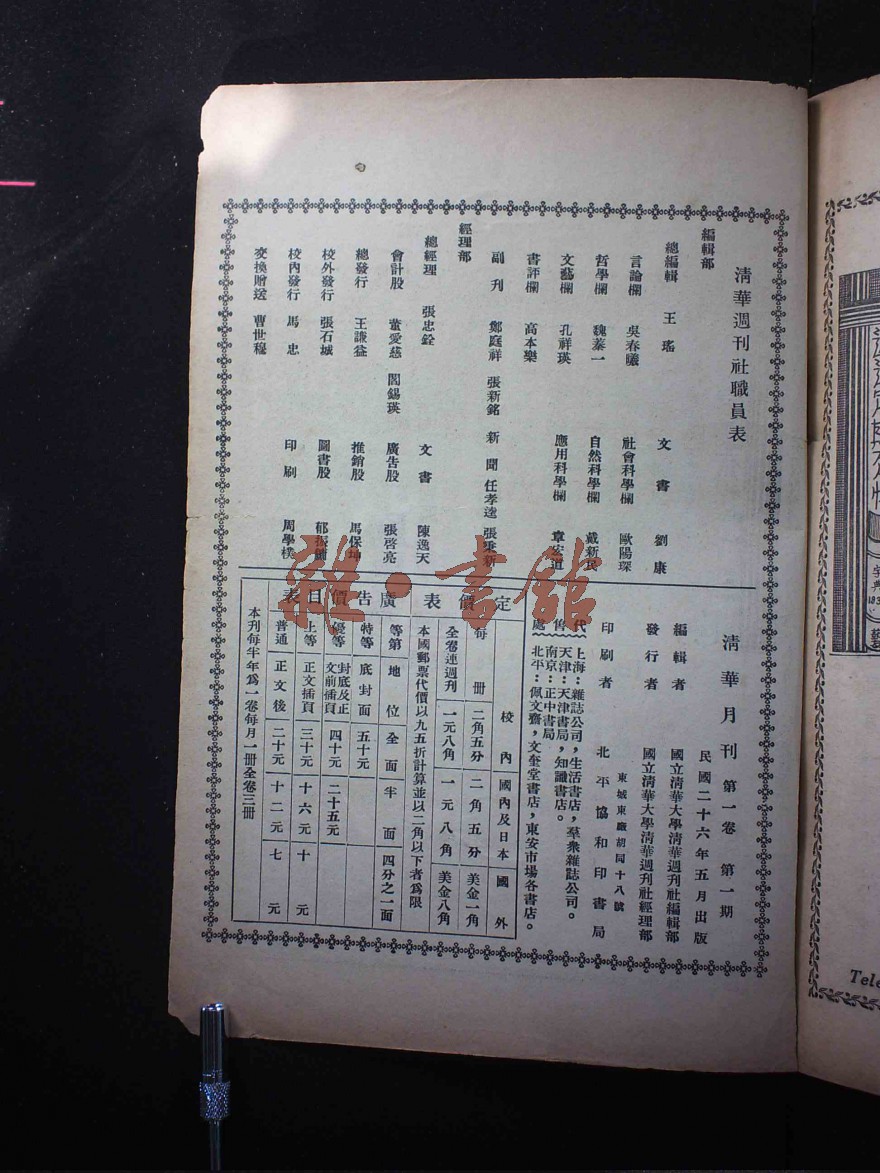 清華週刊社職員表
編輯部
總編輯 王瑤 文書 劉康
言論欄 吳春曦 社會科學欄 歐陽琛
哲學欄 魏蓁一 自然科學欄 戴新民
文藝欄 孔祥瑛 應用科學欄 章宏道
書評欄 高本樂
副刊 鄭庭祥 張新銘 新聞 任孝逵 張秉新
經理部
總經理 張忠銓 文書 陳逸天
會計股 董愛慈 閻錫瑛 廣告股 張啓亮
總發行 王謙益 推銷股 馬保坤
校外發行 張石城 圖書股 郁振鏞
校內發行 馬忠 印刷 周學樸
交換贈送 曹世穆
清華月刊 第一卷 第一期
民國二十六年五月出版
編輯者 國立清華大學清華週刊社編輯部
發行者 國立清華大學清華週刊社經理部
東城東廠胡同十八號
印刷者 北平協和印書局
代售處
上海：雜誌公司，生活書店，羣衆雜誌公司。
天津：天津書局，知識書店。
南京：正中書局
北平：佩文齋，文奎堂書店，東安市場各書店。
定價表
校內 國內及日本 國外
每冊 二角五分 二角五分 美金一角
全卷連週刊 一元八角 一元八角 美金八角
本國郵票代價以九五折計算並以二角以下者爲限
廣告價目表
等第 地位 全面 半面 四分之一面
特等 底封面 五十元
優等 封底及正文前插頁 四十元 二十五元
上等 正文插頁 三十元 十六元 十元
普通 正文後 二十元 十二元 七元
本刊每半年爲一卷每月一冊全卷三冊
雜·書館
Tele